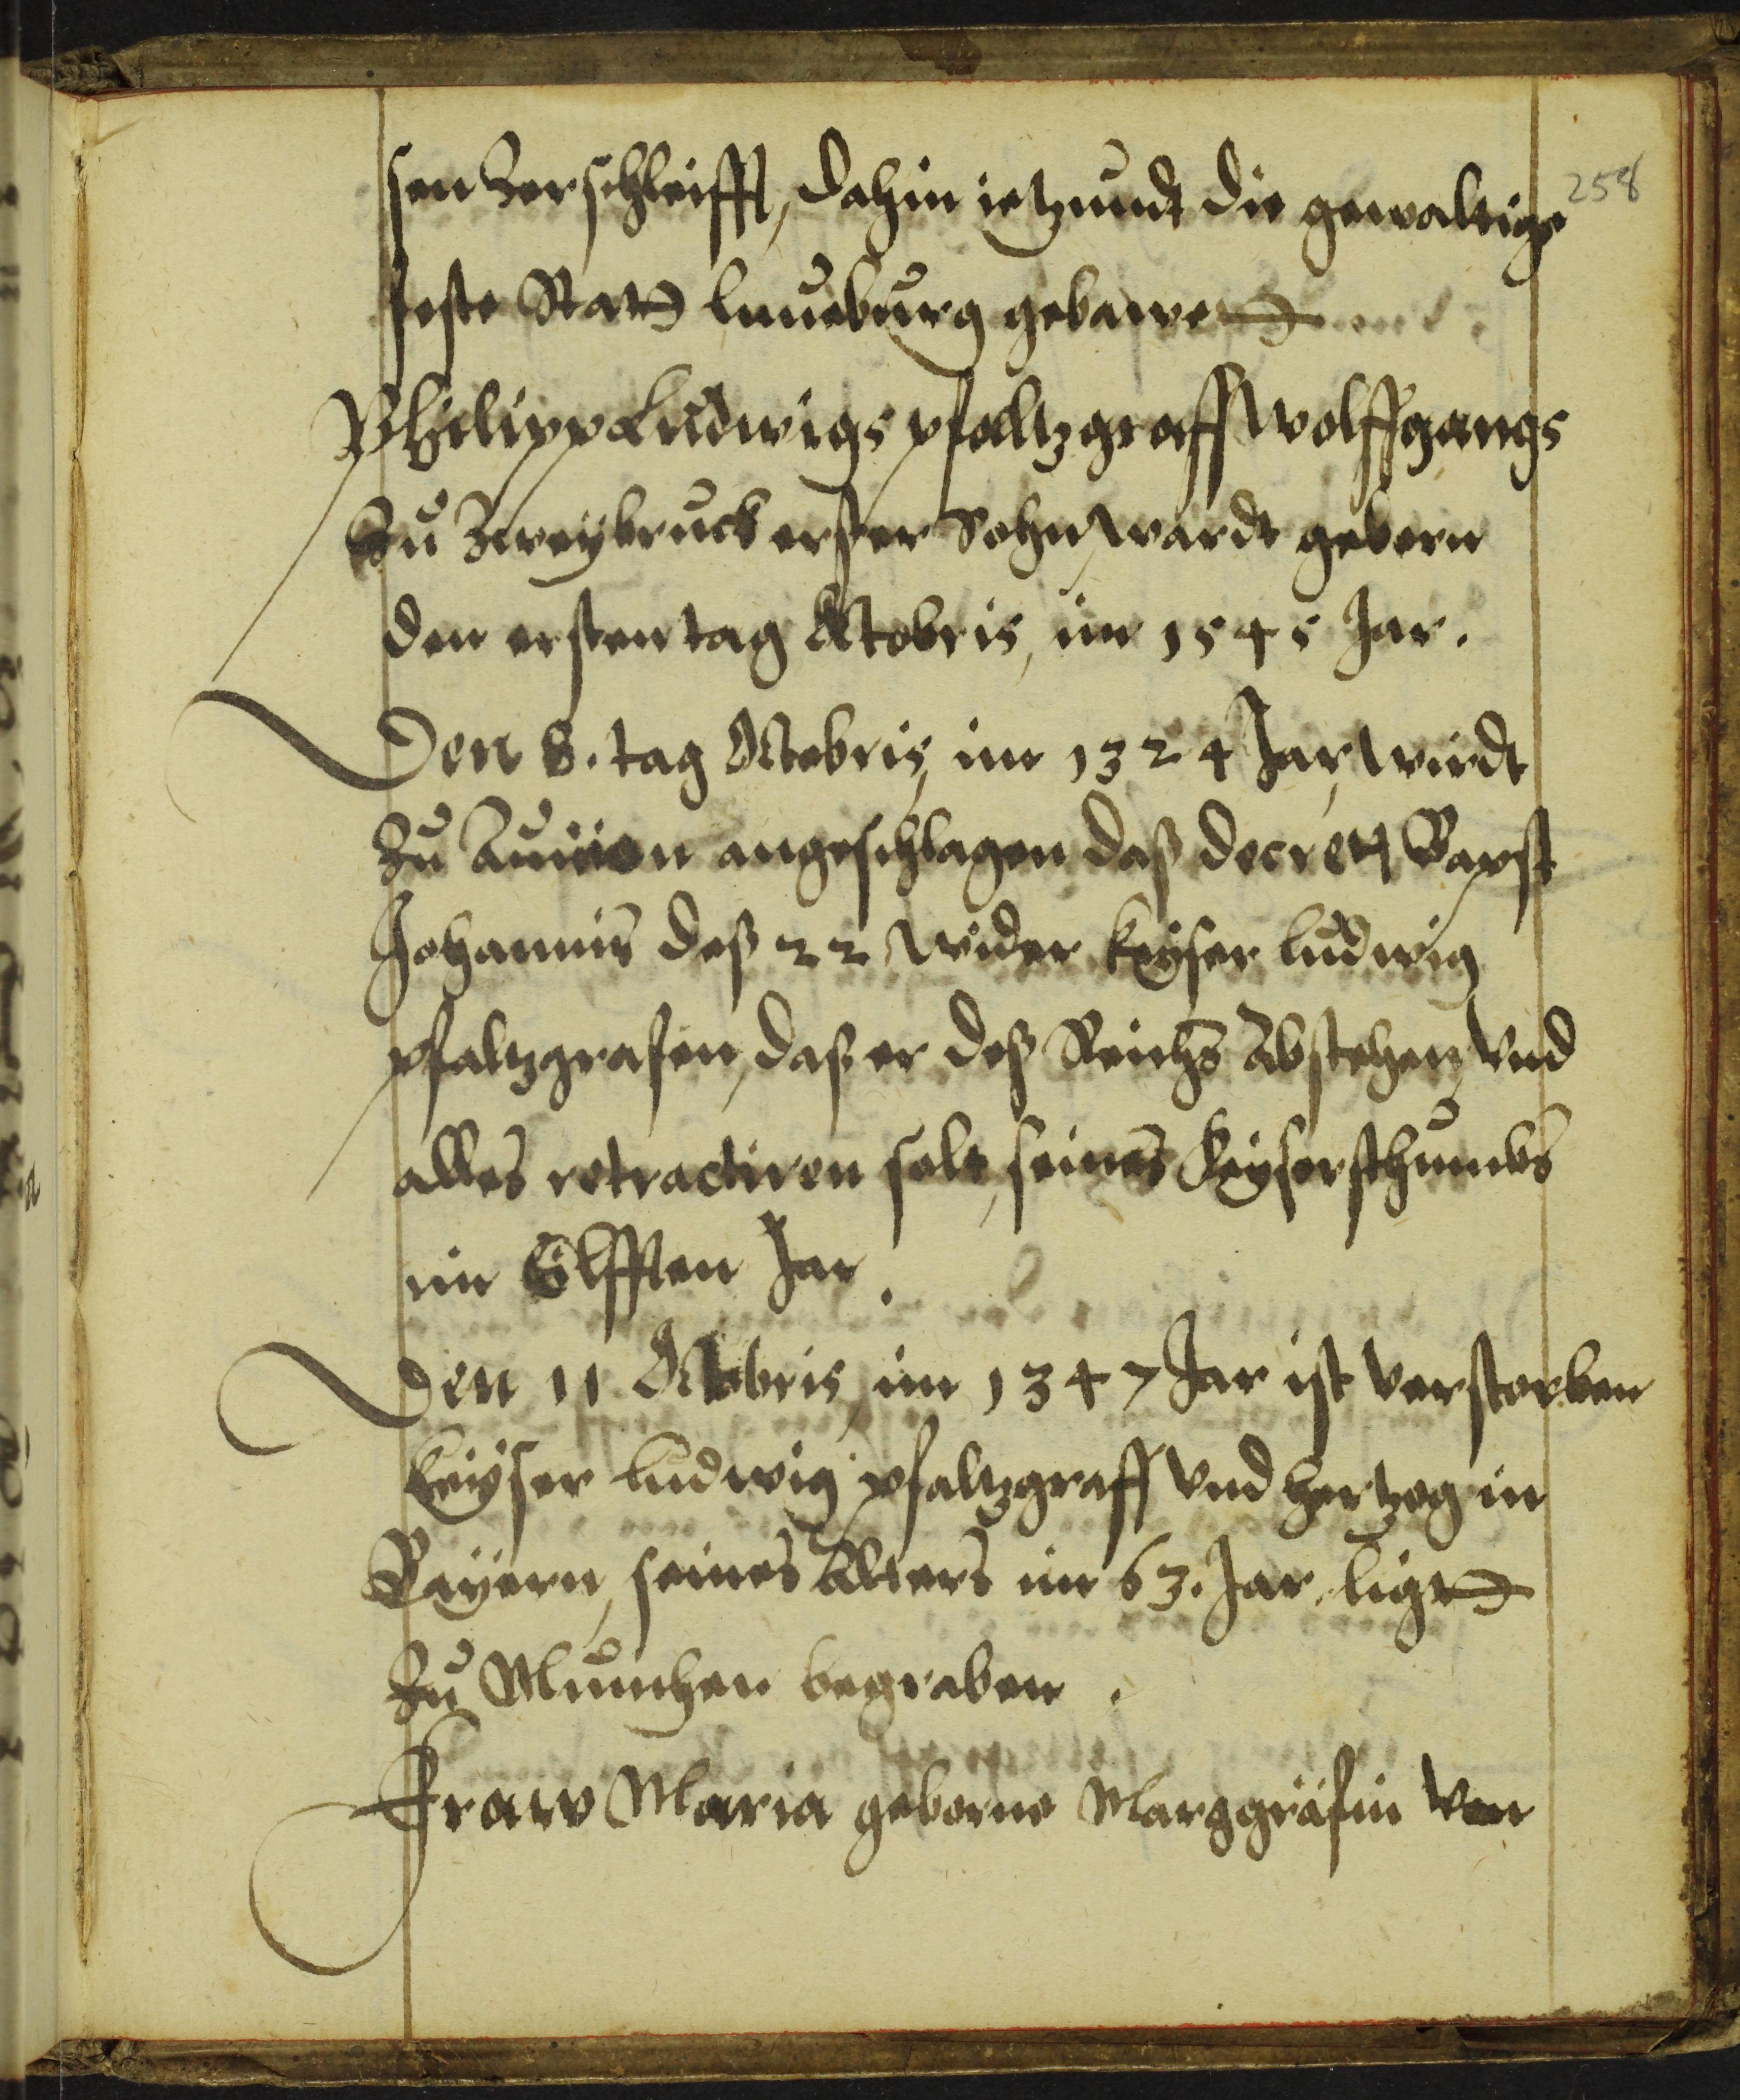 258
sen Zerschleifft, dahin ietzundt die gewaltige
feste Statt luneburg gebawett
Philipp Ludwigs pfaltzgraff Wolffgangs
Zu Zweybruck erster Sohn, wardt geborn
den ersten tag Octobris, im 1545 Jar.
Den 8. tag Octobris, im 1324 Jar, wirdt
Zu Auinion angeschlagen daß decrett Bapst
Johannis deß 22 wider keyser ludwig
pfaltzgrafen, daß er deß Reichs Abstehen, vnd
alles retractiren solt, seines Keyserthumbs
im Eilfften Jar.
Den 11 Octobris, im 1347 Jar ist verstorben
keyser ludwig pfaltzgraff vnd hertzog in
Bayern, seines Alters im 63. Jar, ligtt
Zu Munchen begraben.
Fraw Maria geborne Marggräfin von